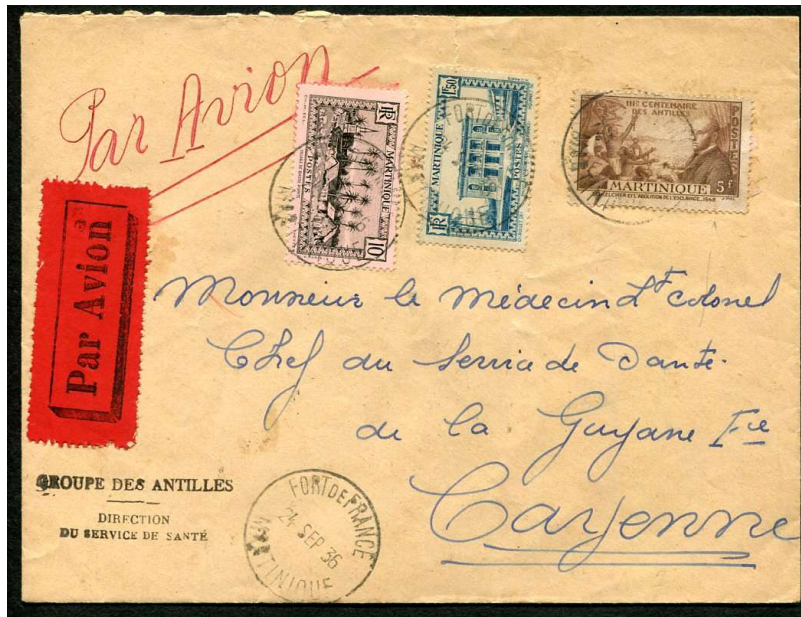 Par Avion
Par Avion
RF
MARTINIQUE
POSTES
10
1f50
MARTINIQUE
POSTES
RF
IIIe CENTENAIRE
DES ANTILLES
POSTES
MARTINIQUE 5f
FORT DE FRANCE
Monsieur le Médecin Lt colonel
Chef du Service de Santé.
de la Guyane Fse
Cayenne
GROUPE DES ANTILLES
DIRECTION
DU SERVICE DE SANTÉ
FORT DE FRANCE
24 SEP 36
MARTINIQUE